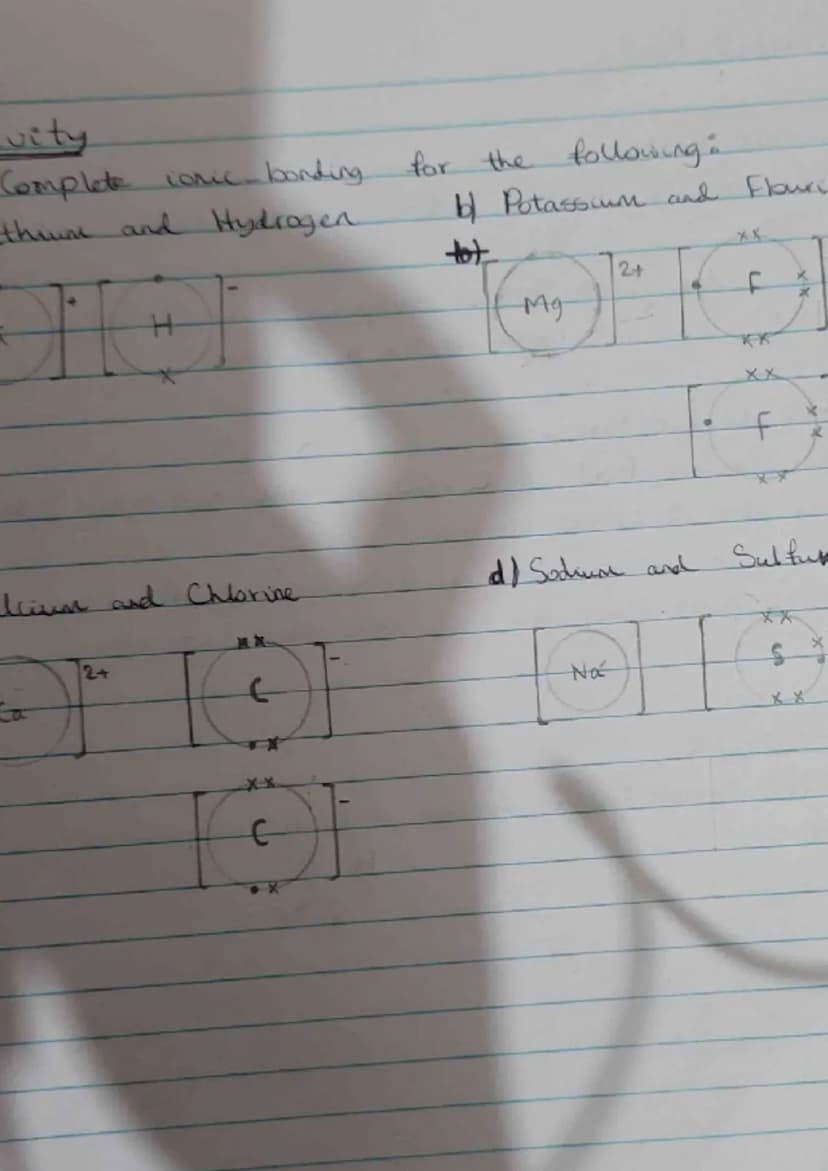 vity
Complete ionic bonding for the following:
thium and Hydrogen
b) Potassium and Flouri
+ H -
Mg 2+ F
F
lcium and Chlorine
d) Sodium and Sulfur
Ca 2+ C -
Na S
C -